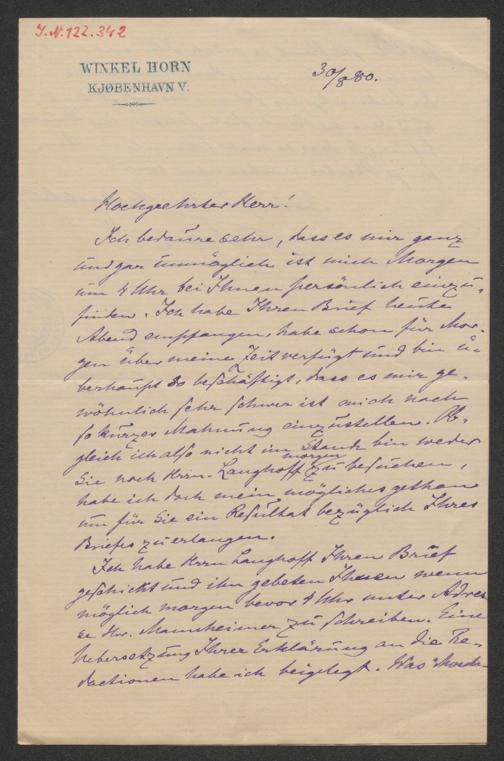 I.N. 122.342
WINKEL HORN
KJØBENHAVN V.
30/8 80.
Hochgeehrter Herr!
Ich bedaure sehr, dass es mir ganz
und gar unmöglich ist mich Morgen
um 4 Uhr bei Ihnen persönlich einzu-
finden. Ich habe Ihren Brief heute
Abend empfangen, habe schon für Mor-
gen über meine Zeit verfügt und bin ü-
berhaupt so beschäftigt, dass es mir ge-
wöhnlich sehr schwer ist mich nach
so kurzer Mahnung einzustellen. Ob-
gleich ich also nicht im Stande bin weder
morgen
Sie noch Hrrn. Langhoff zu besuchen,
habe ich doch mein mögliches gethan
um für Sie ein Resultat bezüglich Ihres
Briefes zu erlangen.
Ich habe Hrrn Langhoff Ihren Brief
geschickt und ihn gebeten Ihnen wenn
möglich morgen bevor 4 Uhr unter Adres
se Hr. Mannheimer zu schreiben. Eine
Uebersetzung Ihrer Erklärung an die Re-
dactionen habe ich beigelegt. Was